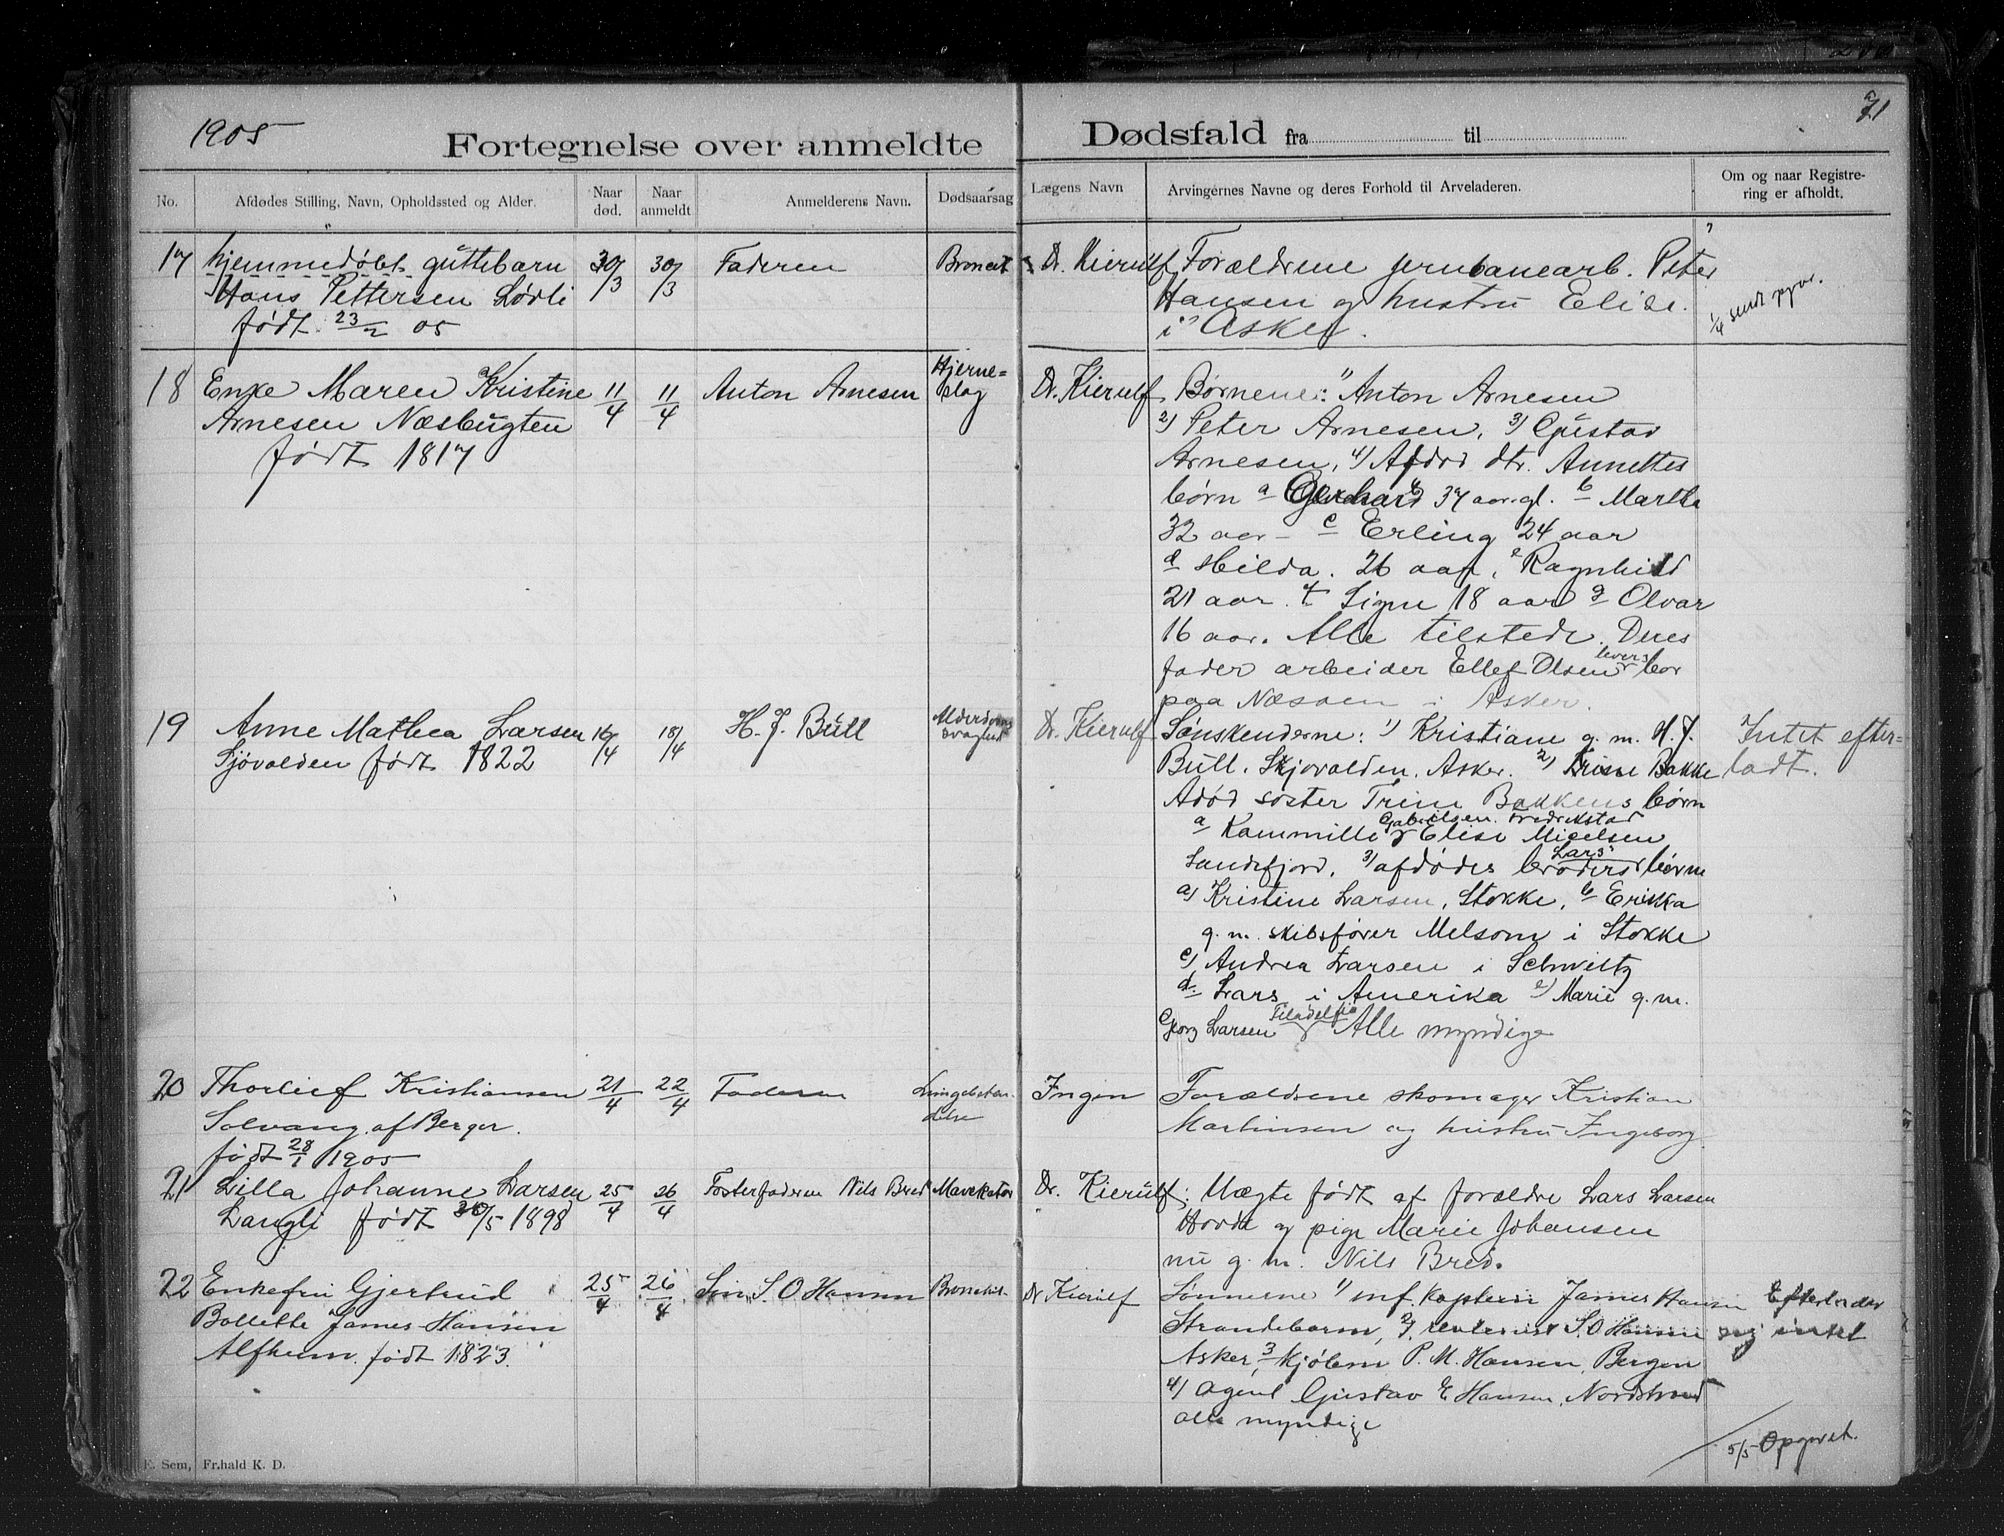 1905
71
Fortegnelse over anmeldte Dødsfald fra til
No.
Afdødes Stilling, Navn, Opholdssted og Alder.
Naar død.
Naar anmeldt
Anmelderens Navn.
Dødsaarsag
Lægens Navn
Arvingernes Navne og deres Forhold til Arveladeren.
Om og naar Registre-
ring er afholdt.
17 hjemmedøbt guttebarn 30/3 30/3 Faderen Dr. Kierulf Forældrene jernbanearb. Peter
Hans Pettersen Lødli Hansen og hustru Elise
født 23/2 05 i Asker.
1/4 sendt
18 Enke Maren Kristine 11/4 11/4 Anton Arnesen Hjerne= Dr. Kierulf Børnene: 1) Anton Arnesen
Arnesen Næsbugten slag 2) Peter Arnesen, 3) Gustav
født 1817 Arnesen, 4) Afdød dtr. Annettes
børn a Gerhard 37 aar gl. b Marthe
32 aar – c Erling 24 aar
d Hilda. 26 aar, e Ragnhild
21 aar. f Signe 18 aar g Olvar
16 aar. Alle tilstede. Deres
fader arbeider Ellef Olsen levers bor
paa Næsøen i Asker.
19 Anne Mathea Larsen 16/4 18/4 H. J. Bull Alderdoms Dr. Kierulf Søskenderne: 1) Kristiane g. m. H. J. Intet efter=
Sjøvolden født 1822 svaghed Bull. Skjøvolden. Asker. 2) Bakke ladt.
Adød søster Trine Bakkens børn
a Kammilla Gabrielsen Fredrikstad Elise Mielsen
Sandefjord, 3) afdødes broders Lars' børn
a) Kristine Larsen, Stokke, b Erikka
g. m. skibsfører Melsom i Stokke
c) Andrea Larsen i Schweitz
d. Lars i Amerika e) Marie g. m.
Georg Larsen Filadelfia Alle myndige
20 Thorleif Kristiansen 21/4 22/4 Faderen Lungebetæn- Ingen Forældrene skomager Kristian
Solvang af Berger. delse Martinsen og hustru Ingeborg
født 28/1 1905
21 Lilla Johanne Larsen 25/4 26/4 Fosterfaderen Nils Bred Mavekatar Dr. Kierulf Uægte født af forældre Lars Larsen
Langli født 30/5 1898 Hovde og pige Marie Johansen
nu g. m. Nils Bred.
22 Enkefru Gjertrud 25/4 26/4 Søn S. O Hansen Dr Kierulf Sønnerne 1) inf. kaptein James Hansen Efterlader
Bollette James Hansen Strandebarm, 2) S. O Hansen sig intet
Alfheim. født 1823. Asker, 3 P. M. Hansen, Bergen
4) Agent Gustav E Hansen, Nordstrand
alle myndige
5/5 Opgivet.
E. Sem, Fr.hald K. D.